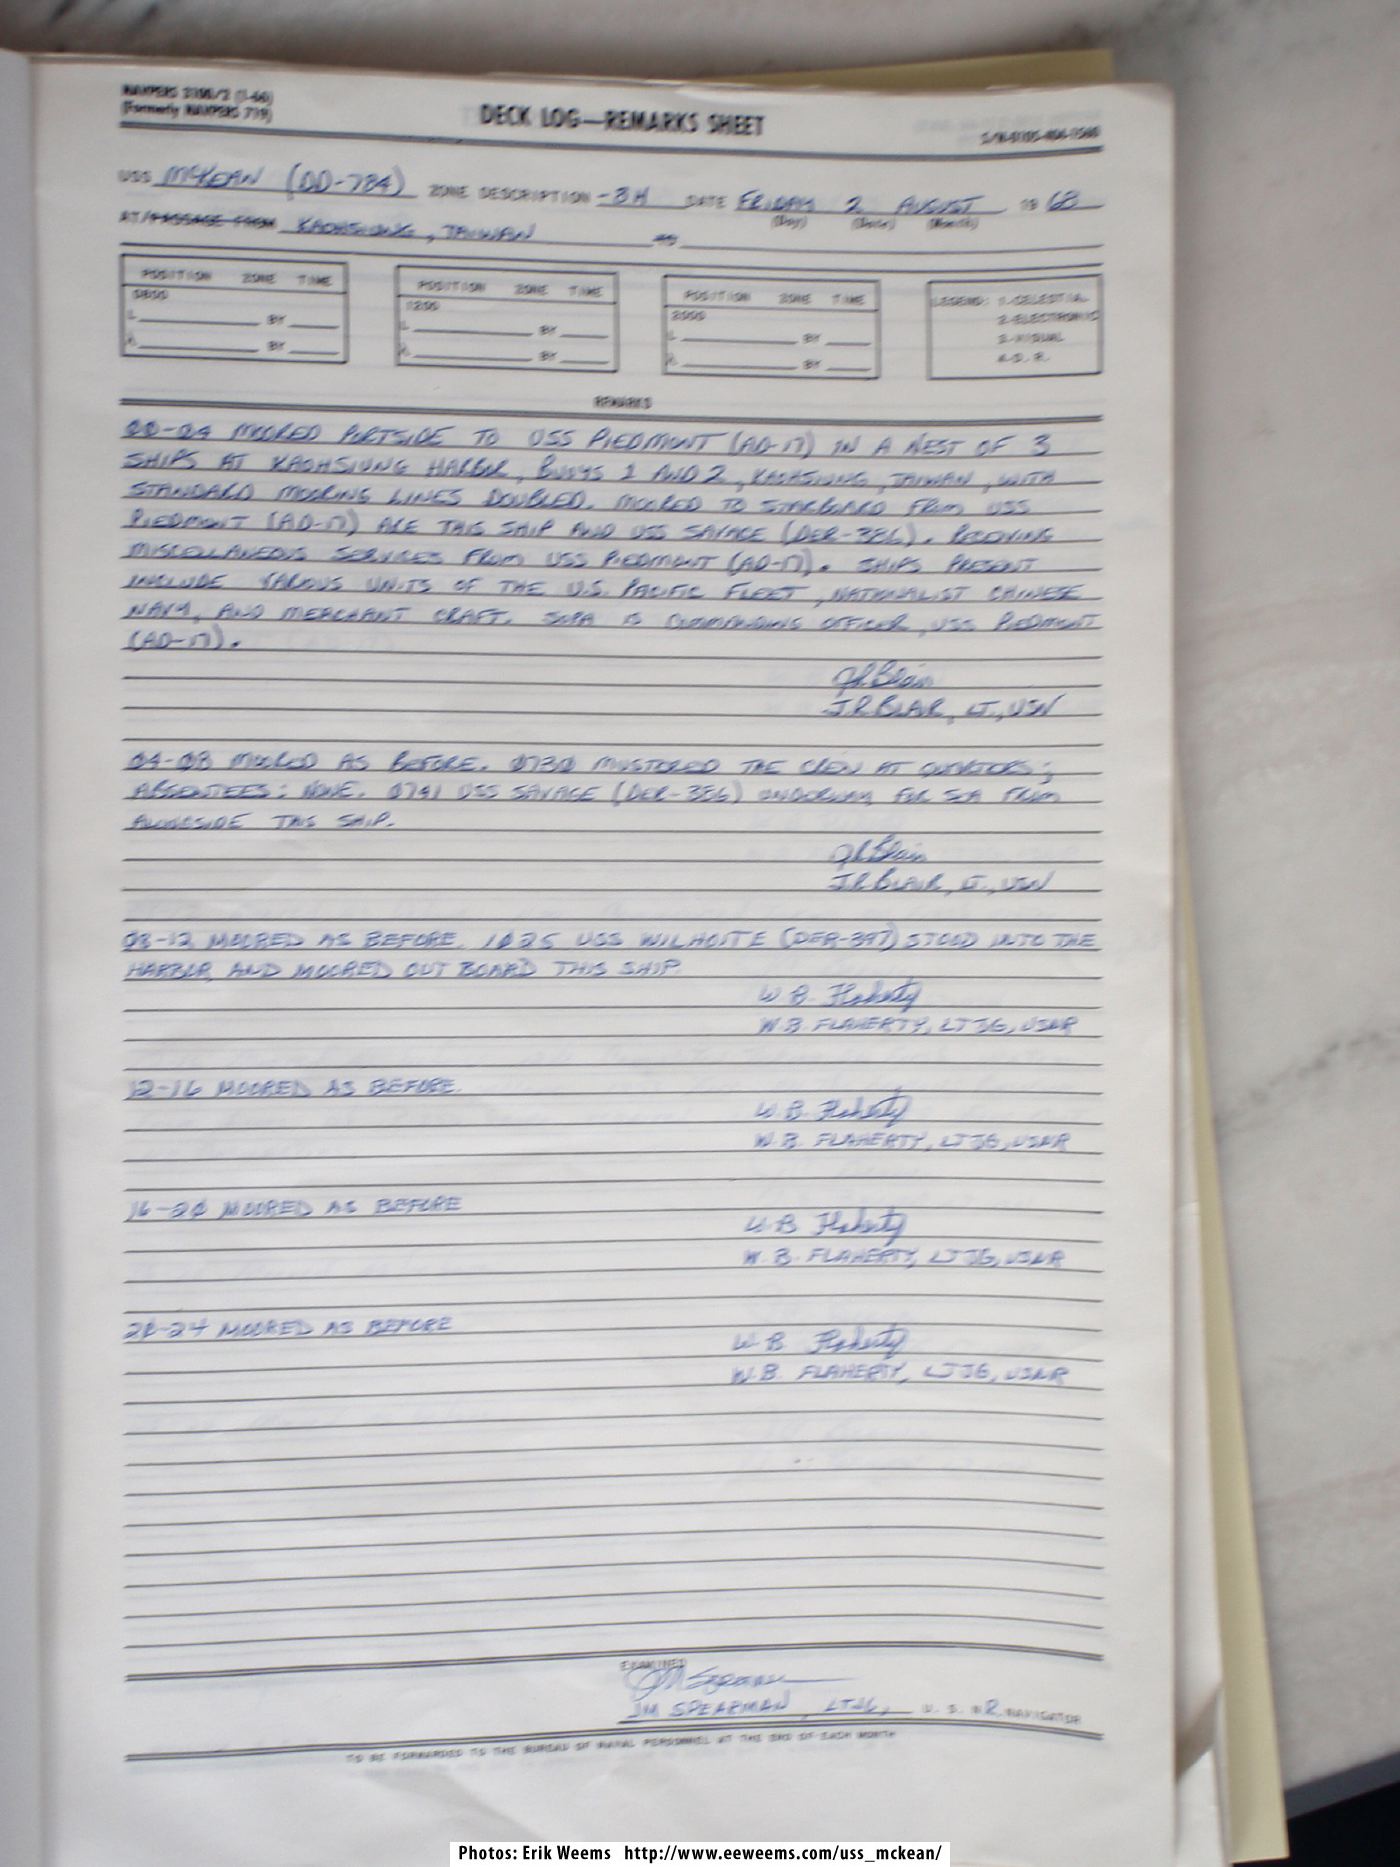 NAVPERS 3100/2 (1-66)
(Formerly NAVPERS 719)
DECK LOG—REMARKS SHEET
USS McKEAN (DD-784) ZONE DESCRIPTION -8H DATE FRIDAY 2 AUGUST 19 68
(Day) (Date) (Month)
AT/PASSAGE FROM KAOHSIUNG, TAIWAN TO
POSITION ZONE TIME
0800
L BY
λ BY
POSITION ZONE TIME
1200
L BY
λ BY
POSITION ZONE TIME
2000
L BY
λ BY
LEGEND: 1-CELESTIAL
2-ELECTRONIC
3-VISUAL
4-D. R.
REMARKS
00-04 MOORED PORTSIDE TO USS PIEDMONT (AD-17) IN A NEST OF 3
SHIPS AT KAOHSIUNG HARBOR, BUOYS 1 AND 2, KAOHSIUNG, TAIWAN, WITH
STANDARD MOORING LINES DOUBLED. MOORED TO STARBOARD FROM USS
PIEDMONT (AD-17) ARE THIS SHIP AND USS SAVAGE (DER-386). RECEIVING
MISCELLANEOUS SERVICES FROM USS PIEDMONT (AD-17). SHIPS PRESENT
INCLUDE VARIOUS UNITS OF THE U.S. PACIFIC FLEET, NATIONALIST CHINESE
NAVY, AND MERCHANT CRAFT. SOPA IS COMMANDING OFFICER, USS PIEDMONT
(AD-17).
JRBlair
J.R. BLAIR, LT., USN
04-08 MOORED AS BEFORE. 0730 MUSTORED THE CREW AT QUARTERS;
ABSENTEES: NONE. 0741 USS SAVAGE (DER-386) UNDERWAY FOR SEA FROM
ALONGSIDE THIS SHIP.
JRBlair
J.R. BLAIR, LT., USN
08-12 MOORED AS BEFORE. 1025 USS WILHOITE (DER-397) STOOD INTO THE
HARBOR, AND MOORED OUT BOARD THIS SHIP.
W B. Flaherty
W.B. FLAHERTY, LTJG, USNR
12-16 MOORED AS BEFORE.
W. B. Flaherty
W. B. FLAHERTY, LTJG, USNR
16-20 MOORED AS BEFORE
W. B. Flaherty
W. B. FLAHERTY, LTJG, USNR
20-24 MOORED AS BEFORE
W. B. Flaherty
W. B. FLAHERTY, LTJG, USNR
EXAMINED
JM Spearman
JM SPEARMAN, LTJG, U. S. NR. NAVIGATOR
TO BE FORWARDED TO THE BUREAU OF NAVAL PERSONNEL AT THE END OF EACH MONTH
Photos: Erik Weems http://www.eeweems.com/uss_mckean/